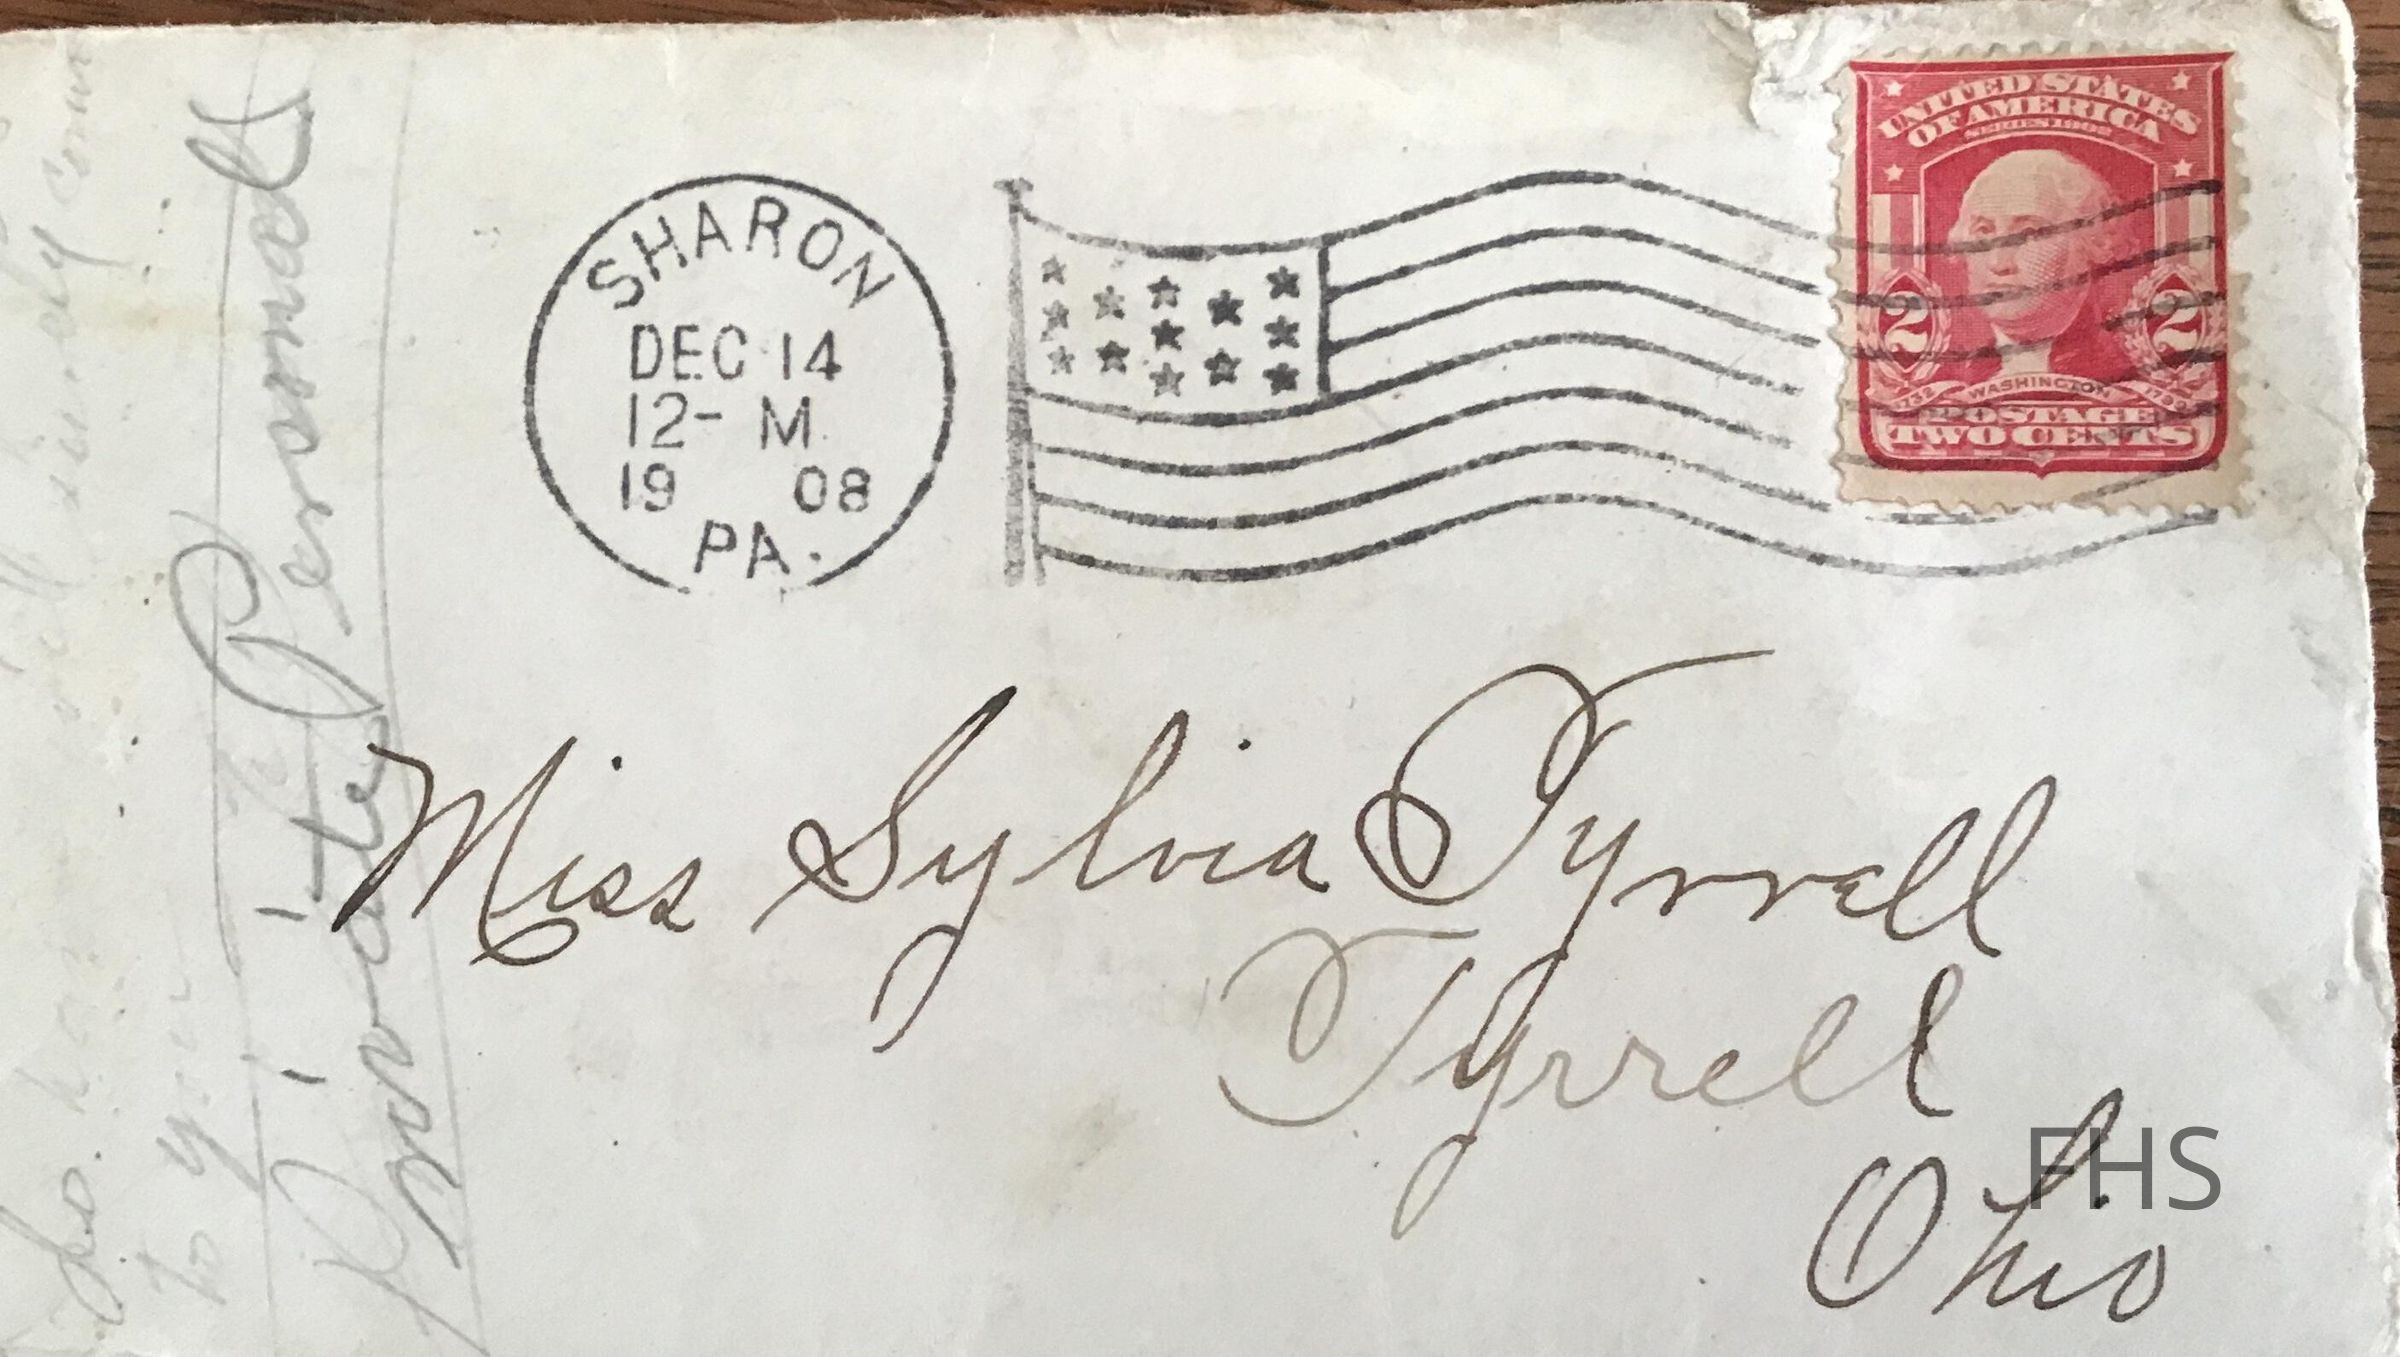 SHARON
DEC 14
12- M
19 08
PA.
UNITED STATES
OF AMERICA
2 2
1732 WASHINGTON 1799
POSTAGE
TWO CENTS
Miss Sylvia Tyrrell
Tyrrell
Ohio
FHS
Private & Personal
to you